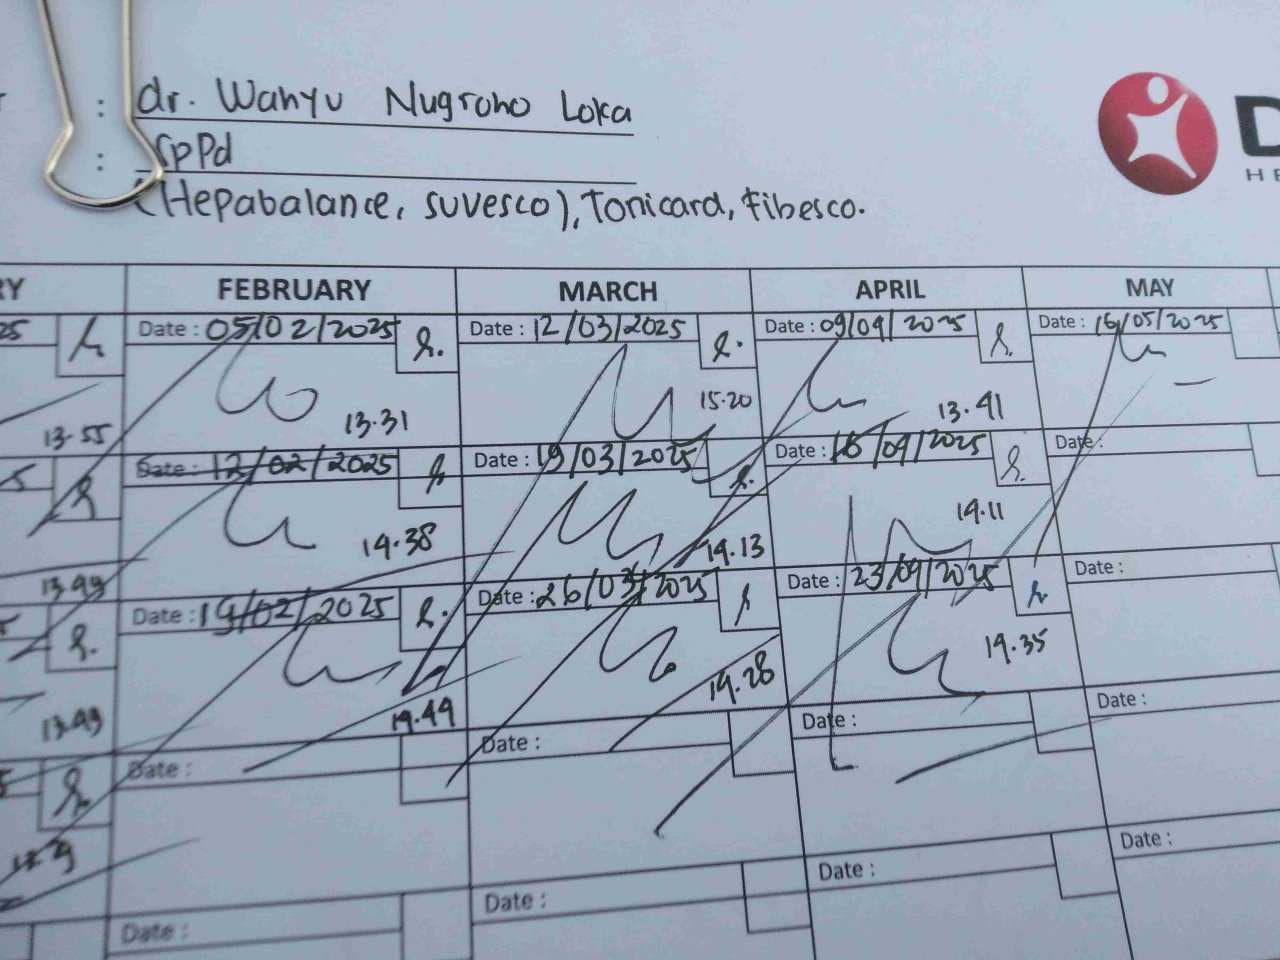 : dr. Wahyu Nugroho Loka
: SpPd
(Hepabalance, suvesco), Tonicard, Fibesco.
D
HE
RY FEBRUARY MARCH APRIL MAY
25 Date : 05/02/2025 Date : 12/03/2025 Date : 09/04/2025 Date : 16/05/2025
13.55 13.31 15.20 13.41
5 Date : 12/02/2025 Date : 19/03/2025 Date : 16/04/2025 Date :
13.49 14.38 14.13 14.11
Date : 19/02/2025 Date : 26/03/2025 Date : 23/04/2025 Date :
13.49 14.44 14.28 14.35
Date : Date : Date : Date :
Date : Date : Date : Date :